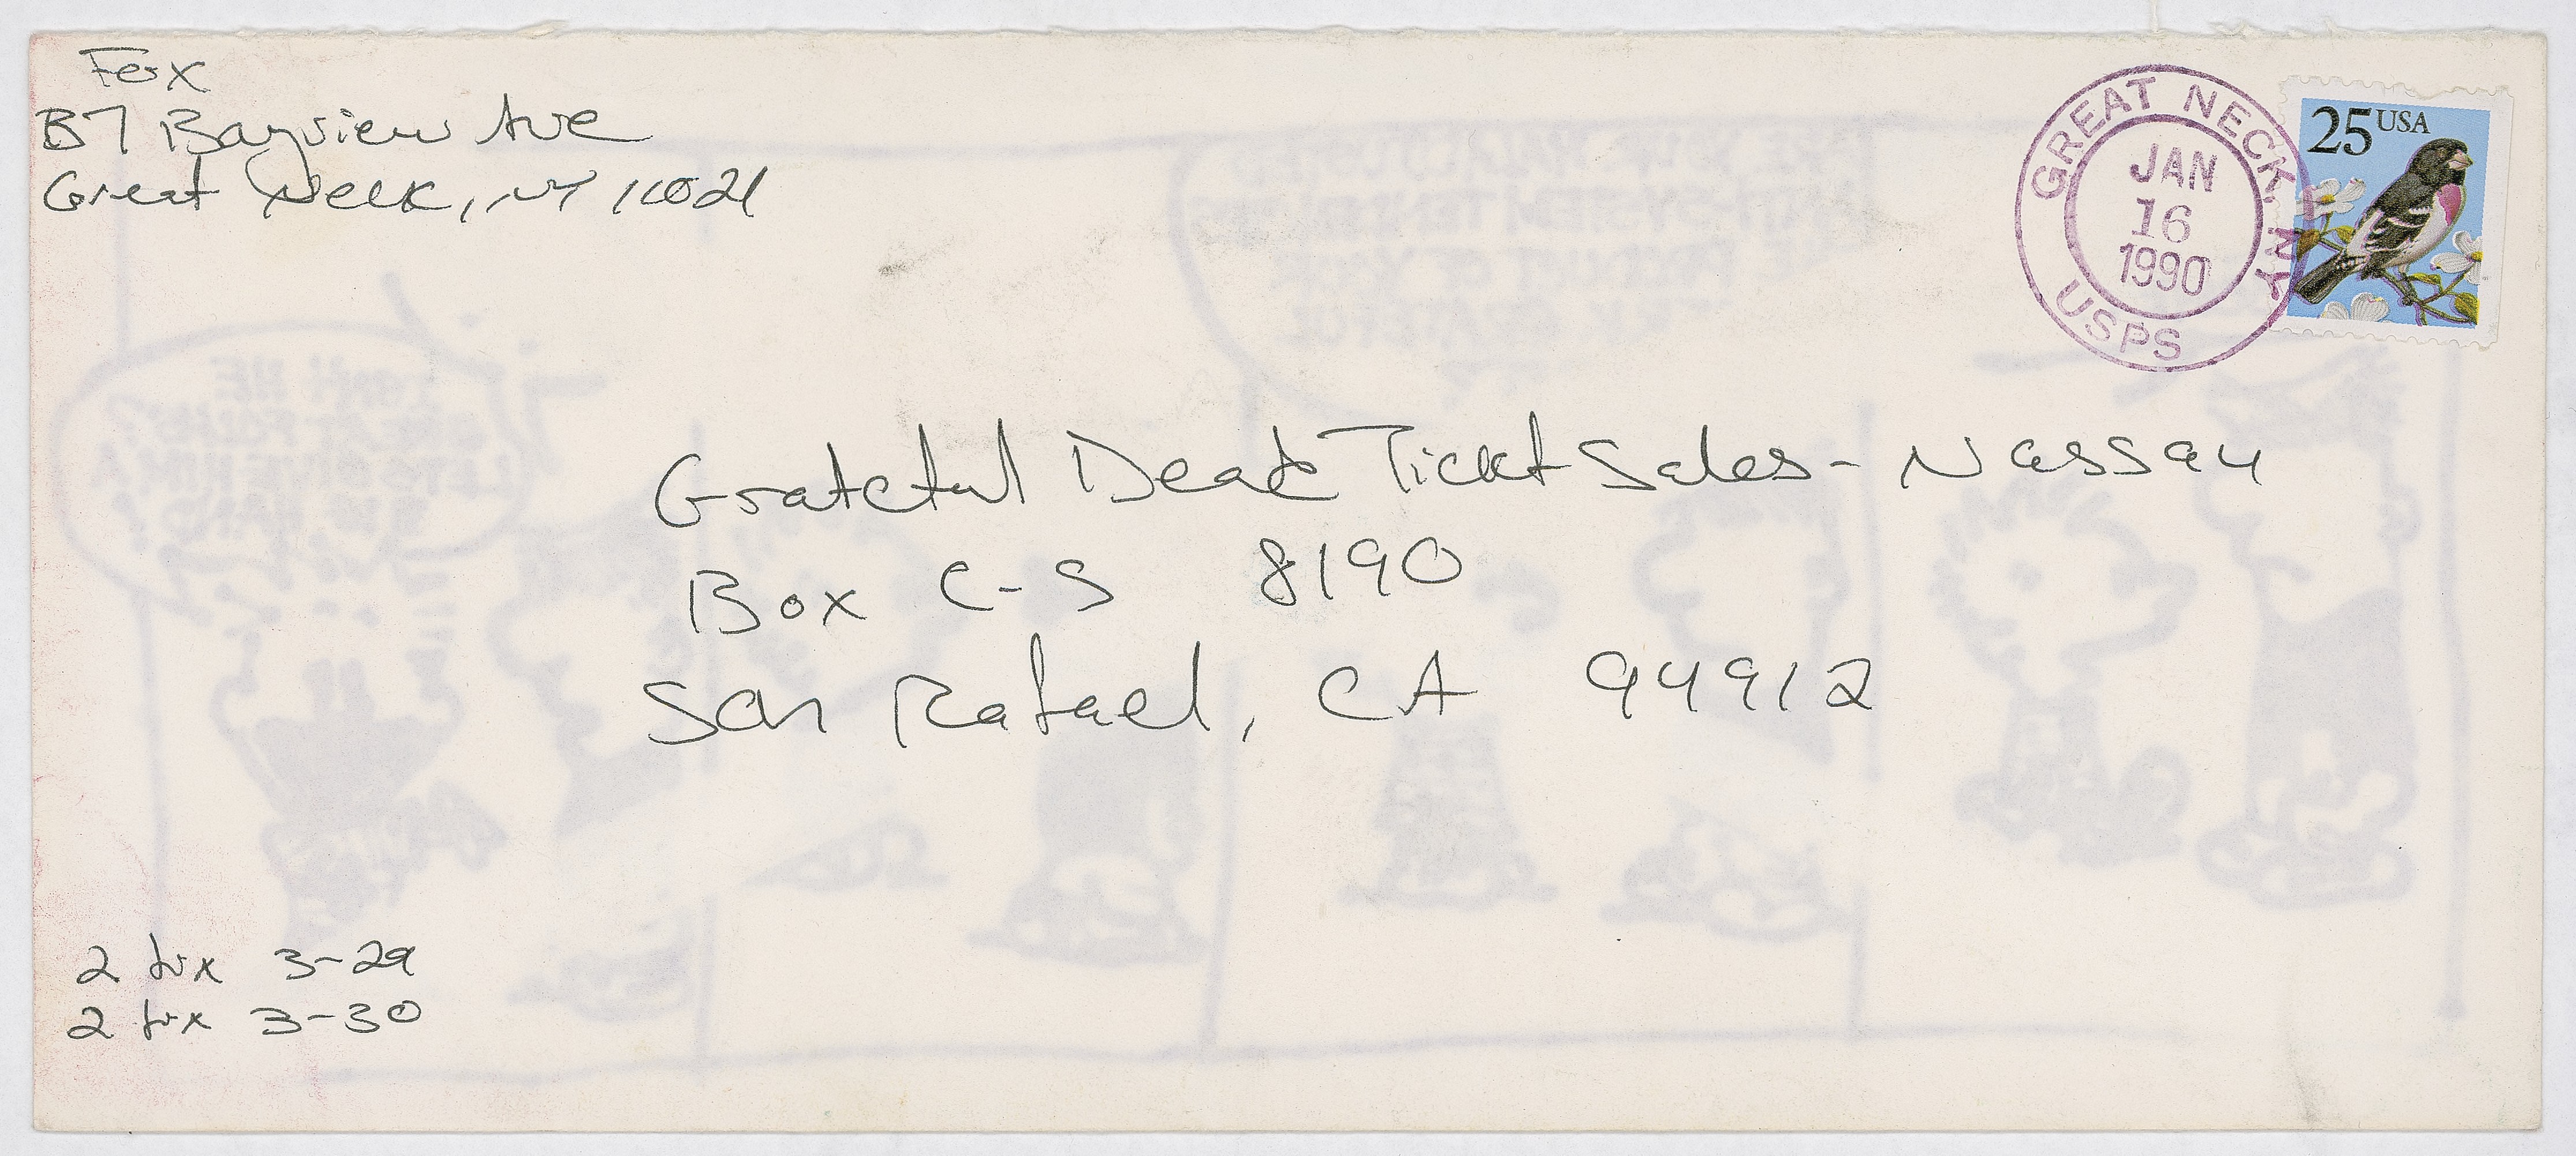 Fox
B7 Bayview Ave
Great Neck, NY 11021
GREAT NECK, NY
JAN
16
1990
USPS
25 USA
Grateful Dead Tickt Sales - Nassau
Box C-S 8190
San Rafael, CA 94912
2 tix 3-29
2 tix 3-30